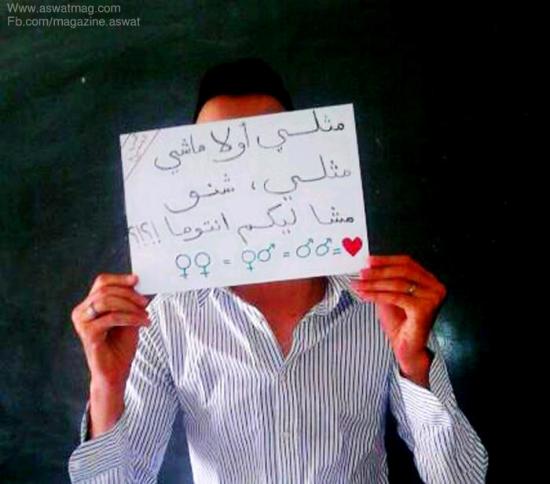 Www.aswatmag.com
Fb.com/magazine.aswat
مثلي أولا ماشي
مثلي، شنو
مشا ليكم انتوما !!؟!؟
♀♀ = ♀♂ = ♂♂ = ❤